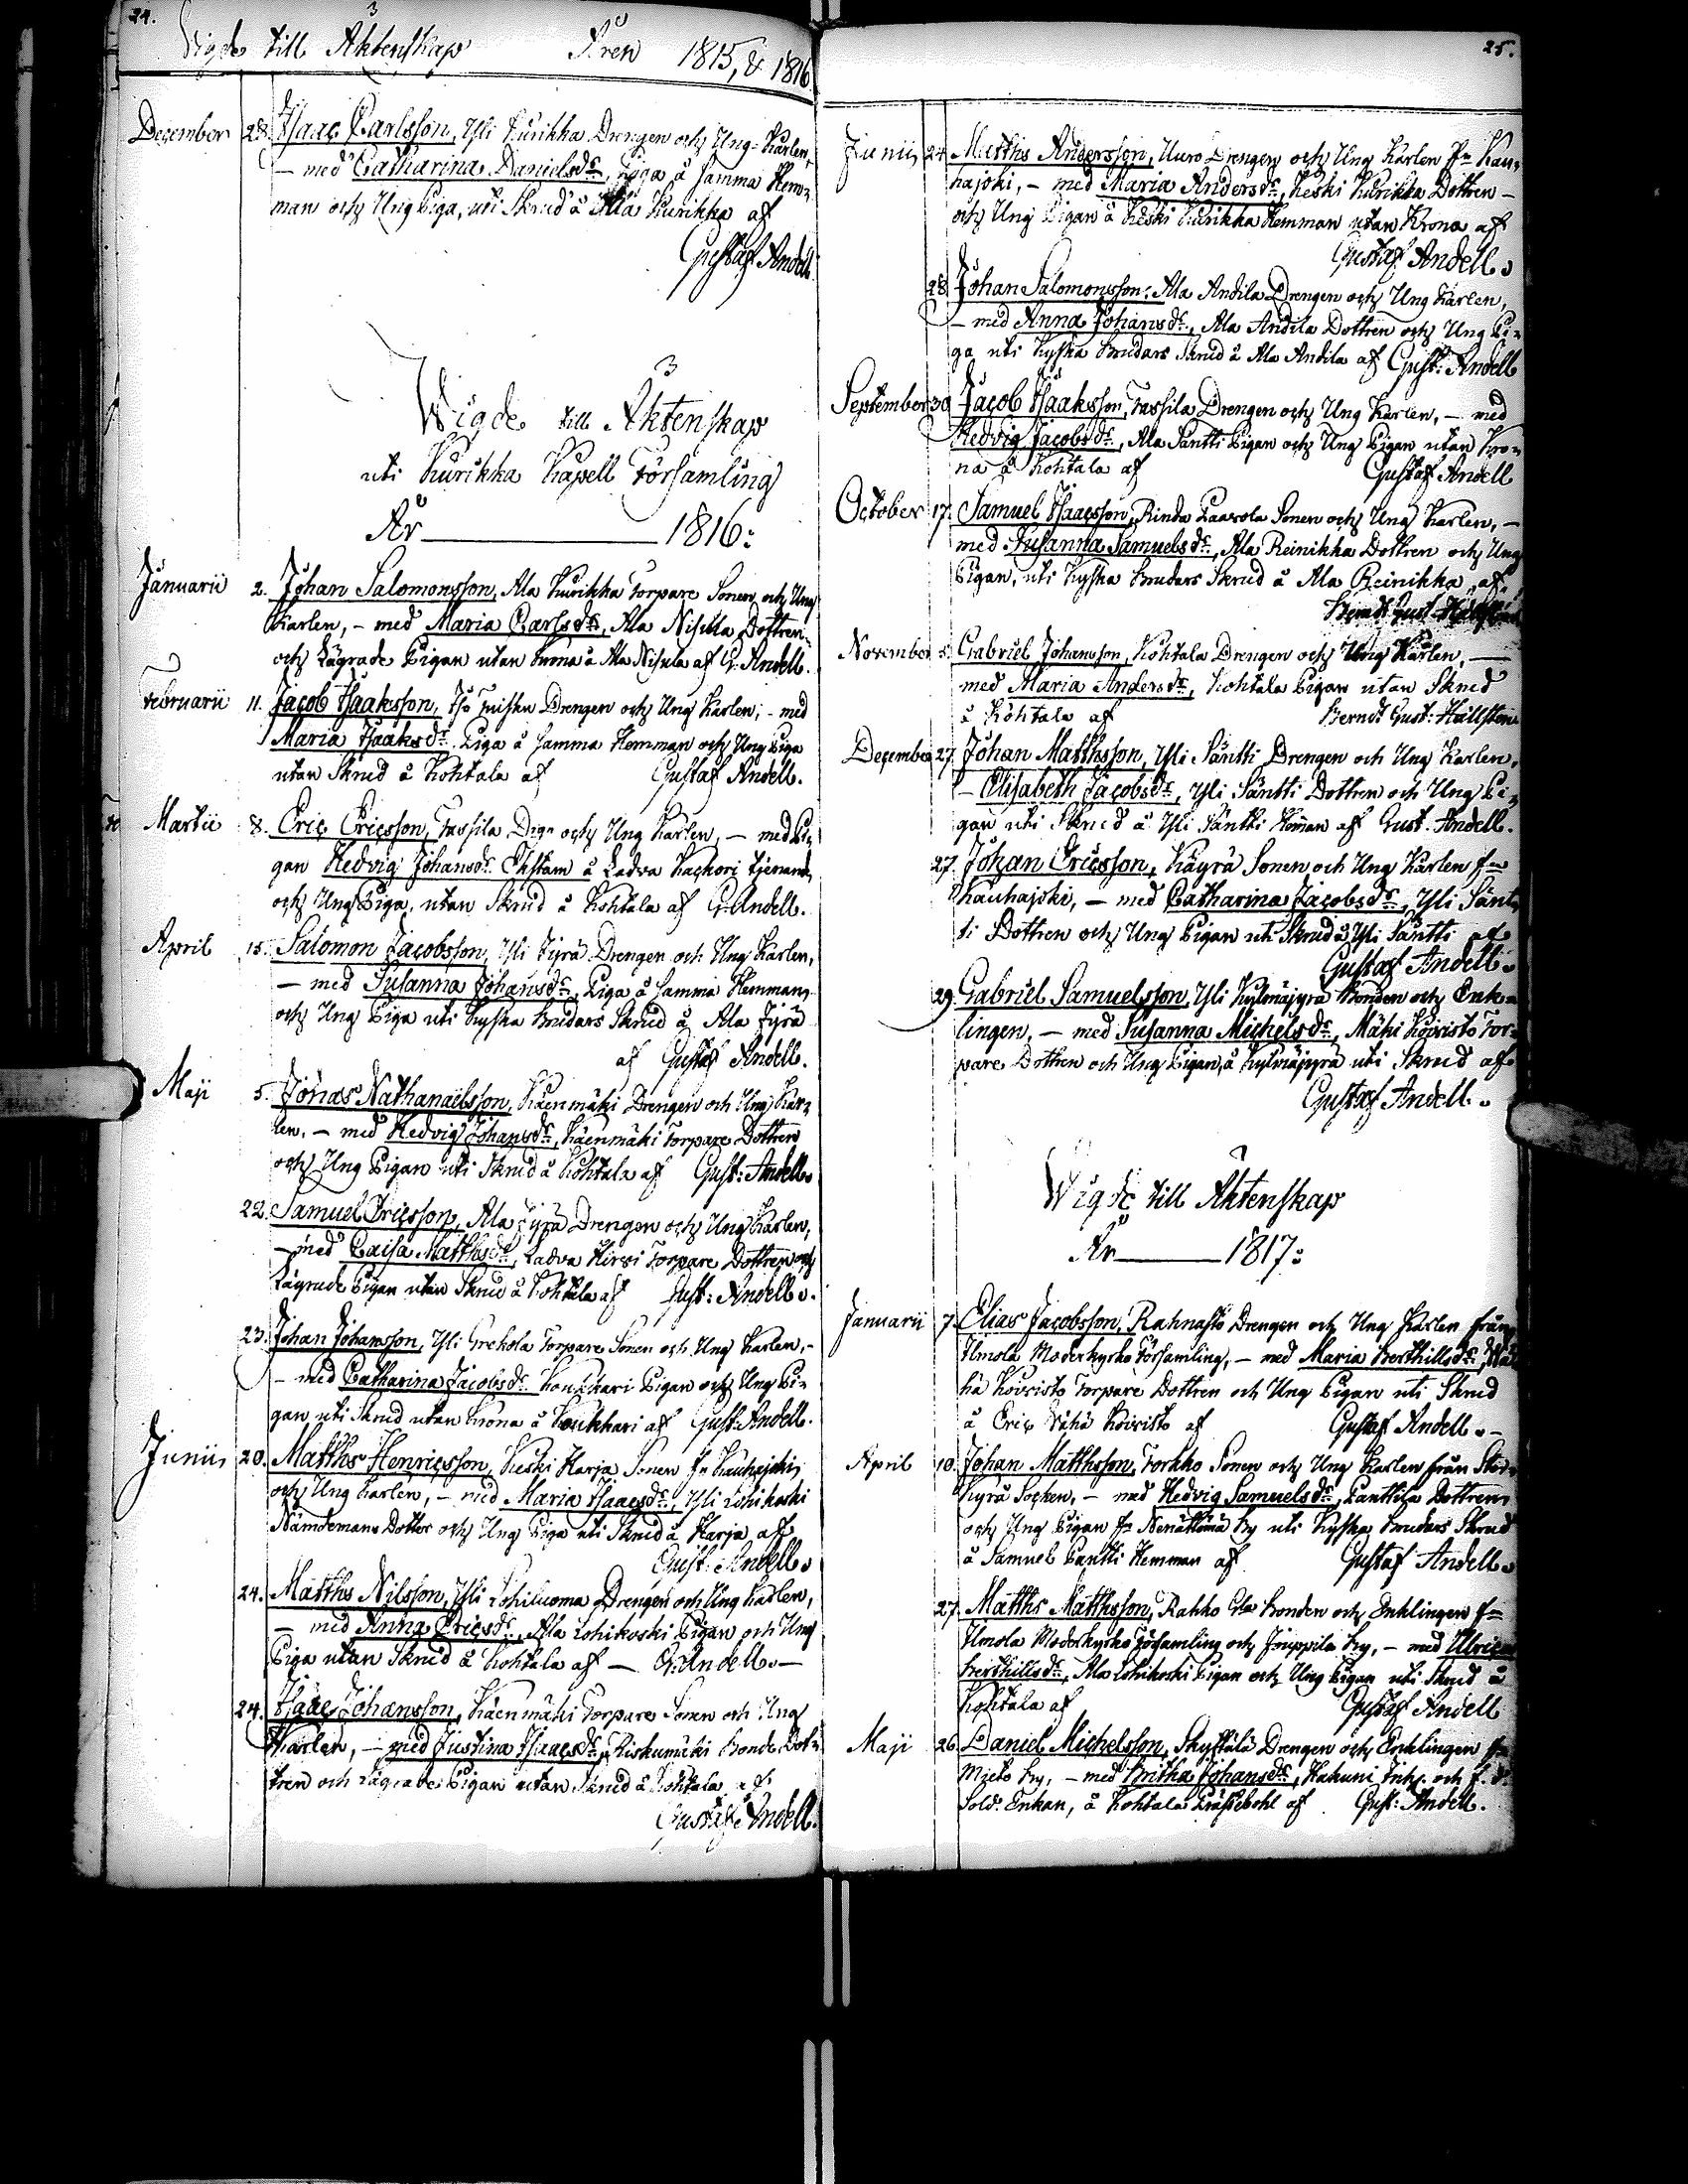 24.
Wigde till Äktenskap Åren 1815, & 1816
December 28. Isaac Carlsson, Yli Kurikka Drengen och Ung-Karlen,
– med Catharina Danielsdr, Piga å samma Hem-
man och Ung Piga, uti Skrud å Ala Kurikka af
Gustaf Andell.
Wigde till Äktenskap
uti Kurikka Kapell Församling
År 1816:
Januarii 2. Johan Salomonsson, Ala Kurikka Torpare Sonen och Ung
Karlen, – med Maria Carlsdr, Ala Nisula Dottren
och Lägrade Pigan utan krona å Ala Nisula af G. Andell.
Februarii 11. Jacob Isaaksson, Iso Drengen och Ung Karlen, – med
Maria Isaaksdr. Piga å samma Hemman och Ung Piga
utan Skrud å Kohtala af Gustaf Andell.
Martii 8. Eric Ericsson, Tassila Dign och Ung Karlen, – med Pi-
gan Hedvig Johansdr Ekstam å Ladva Kackori tjenande
och Ung Piga, utan Skrud å Kohtala af G. Andell.
April 15. Salomon Jacobsson, Yli Jyrä Drengen och Ung Karlen,
– med Susanna Johansdr, Piga å samma Hemman
och Ung Piga uti kyska Brudars Skrud å Ala Jyrä
af Gustaf Andell.
Maji 5. Jonas Nathanaelsson, Käenmäki Drengen och Ung Kar-
len, – med Hedvig Johansdr, Käenmäki Torpare Dottren
och Ung Pigan uti Skrud å Kohtala af Gust: Andell.
22. Samuel Ericsson, Ala Jyrä Drengen och Ung Karlen,
– med Caisa Matthsdr, Ladva Hirsi Torpare Dottren och
Lägrade Pigan utan Skrud å Kohtala af Gust: Andell.
23. Johan Johansson, Yli Grekola Torpare Sonen och Ung Karlen,–
– med Catharina Jacobsdr Koukkari Pigan och Ung Pi-
gan uti Skrud utan Krona å Koukkari af Gust: Andell.
Junii 20. Matths Henricsson, Keski Harja Sonen fn Kauhajoki
och Ung Karlen, – med Maria Isaacsdr, Yli Lohikoski
Nämdemans Dotter och Ung Piga uti Skrud å Harja af
Gust: Andell.
24. Matths Nilsson, Yli Lohiluoma Drengen och Ung Karlen,
– med Anna Ericsdr, Ala Lohikoski Pigan och Ung
Piga utan Skrud å Kohtala af – G. Andell. –
24. Isaac Johansson, Käenmäki Torpare Sonen och Ung
Karlen, – med Justina Isaacsdr, Riskumäki Bonde Dot-
tren och Lägrade Pigan utan Skrud å Kohtala af
Gustaf Andell.
25.
Junii 24. Matths Andersson, Uuro Drengen och Ung Karlen fn Kau-
hajoki, – med Maria Andersdr, Keski Kurikka Dottren –
och Ung Pigan å Keski Kurikka Hemman utan Krona af
Gustaf Andell.
28. Johan Salomonsson, Ala Andila Drengen och Ung Karlen,
– med Anna Johansdr, Ala Andila Dottren och Ung Pi-
ga uti kyska Brudars Skrud å Ala Andila af Gust: Andell
September 30. Jacob Isaaksson, Tassila Drengen och Ung Karlen, – med
Hedvig Jacobsdr, Ala Säntti Pigan och Ung Pigan utan Kro-
na å Kohtala af Gustaf Andell
October 17. Samuel Isaacsson, Rinda Paavola Sonen och Ung Karlen, –
med Susanna Samuelsdr, Ala Reinikka Dottren och Ung
Pigan, uti kyska Brudars Skrud å Ala Reinikka, af
Berndt Gust: Hällsten
November 5. Gabriel Johansson, Kohtala Drengen och Ung Karlen, –
med Maria Andersdr, Kohtala Pigan utan Skrud
å Kohtala af Berndt Gust: Hällsten
December 27. Johan Matthsson, Yli Säntti Drengen och Ung Karlen,
– Elisabeth Jacobsdr, Yli Säntti Dottren och Ung Pi-
gan uti Skrud å Yli Säntti Heman af Gust. Andell.
27. Johan Ericsson, Käyrä Sonen och Ung Karlen fn
Kauhajoki, – med Catharina Jacobsdr, Yli Sänt-
ti Dottren och Ung Pigan uti Skrud å Yli Säntti af
Gustaf Andell.
29. Gabriel Samuelsson, Yli Kylmäjyrä Bonden och Enk-
lingen, – med Susanna Michelsdr, Mäki Koivisto Tor-
pare Dottren och Ung Pigan, å Kylmäjyrä uti Skrud af
Gustaf Andell.
Wigde till Äktenskap
År 1817:
Januarii 7. Elias Jacobsson, Rahnasto Drengen och Ung Karlen från
Ilmola Moderkyrko Församling, – med Maria Berthillsdr, Wä-
hä Koivisto Torpare Dottren och Ung Pigan uti Skrud
å Eric Wähä Koivisto af Gustaf Andell. –
April 10. Johan Matthsson, Torkko Sonen och Ung Karlen från Stor-
kyrä Socken, – med Hedvig Samuelsdr, Panttila Dottren
och Ung Pigan fn Nenättömä by uti kyska Brudars Skrud
å Samuel Pantti Hemman af Gustaf Andell.
27. Matths Matthsson, Rahko Bonden och Enklingen fn
Ilmola Moderkyrko Församling och Jouppila by, – med Ulrica
Berthillsdr, Ala Lohikoski Pigan och Ung Pigan uti Skrud å
Kohtala af Gustaf Andell
Maji 26. Daniel Michelsson, Skyttälä Drengen och Enklingen fn
Mieto by, – med Britha Johansdr, Hakuni Inhs. och f. d.
Sold. Enkan, å Kohtala Prästebohl af Gust: Andell.